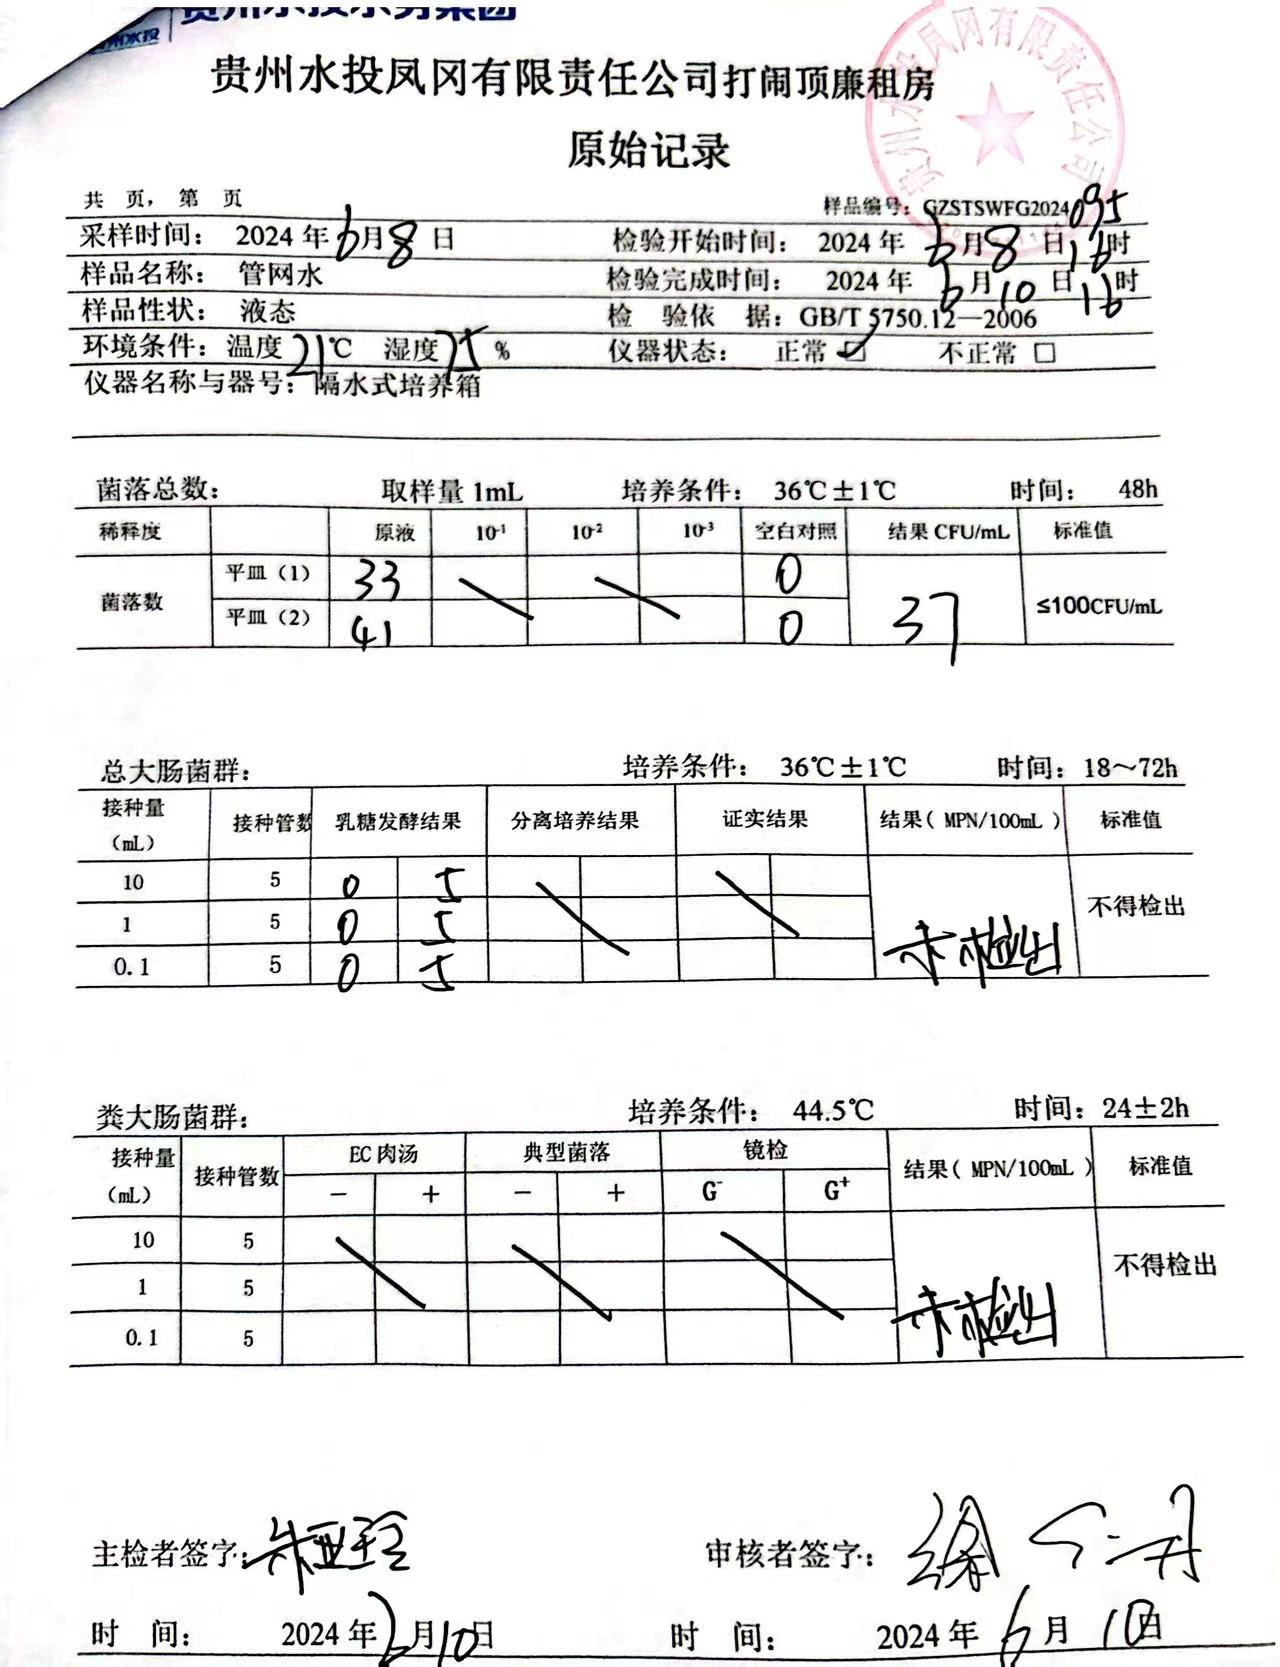 贵州水投水务集团
贵州水投凤冈有限责任公司打闹顶廉租房
原始记录
共 页，第 页 样品编号：GZSTSWFG2024095
采样时间： 2024 年 6 月 8 日 检验开始时间： 2024 年 6 月 8 日 16 时
样品名称： 管网水 检验完成时间： 2024 年 6 月 10 日 16 时
样品性状： 液态 检 验依 据：GB/T 5750.12—2006
环境条件：温度 21 ℃ 湿度 75 % 仪器状态： 正常 ☑ 不正常 □
仪器名称与器号：隔水式培养箱
菌落总数： 取样量 1mL 培养条件： 36℃±1℃ 时间： 48h
稀释度 原液 10-1 10-2 10-3 空白对照 结果 CFU/mL 标准值
平皿（1） 33 0
菌落数 37 ≤100CFU/mL
平皿（2） 41 0
总大肠菌群： 培养条件： 36℃±1℃ 时间：18～72h
接种量（mL） 接种管数 乳糖发酵结果 分离培养结果 证实结果 结果（ MPN/100mL ） 标准值
10 5 0 5
1 5 0 5 未检出 不得检出
0.1 5 0 5
粪大肠菌群： 培养条件： 44.5℃ 时间：24±2h
接种量（mL） 接种管数 EC 肉汤 典型菌落 镜检 结果（ MPN/100mL ） 标准值
− + − + G- G+
10 5
1 5 未检出 不得检出
0.1 5
主检者签字： 审核者签字：
时 间： 2024 年 6 月 10 日 时 间： 2024 年 6 月 10 日